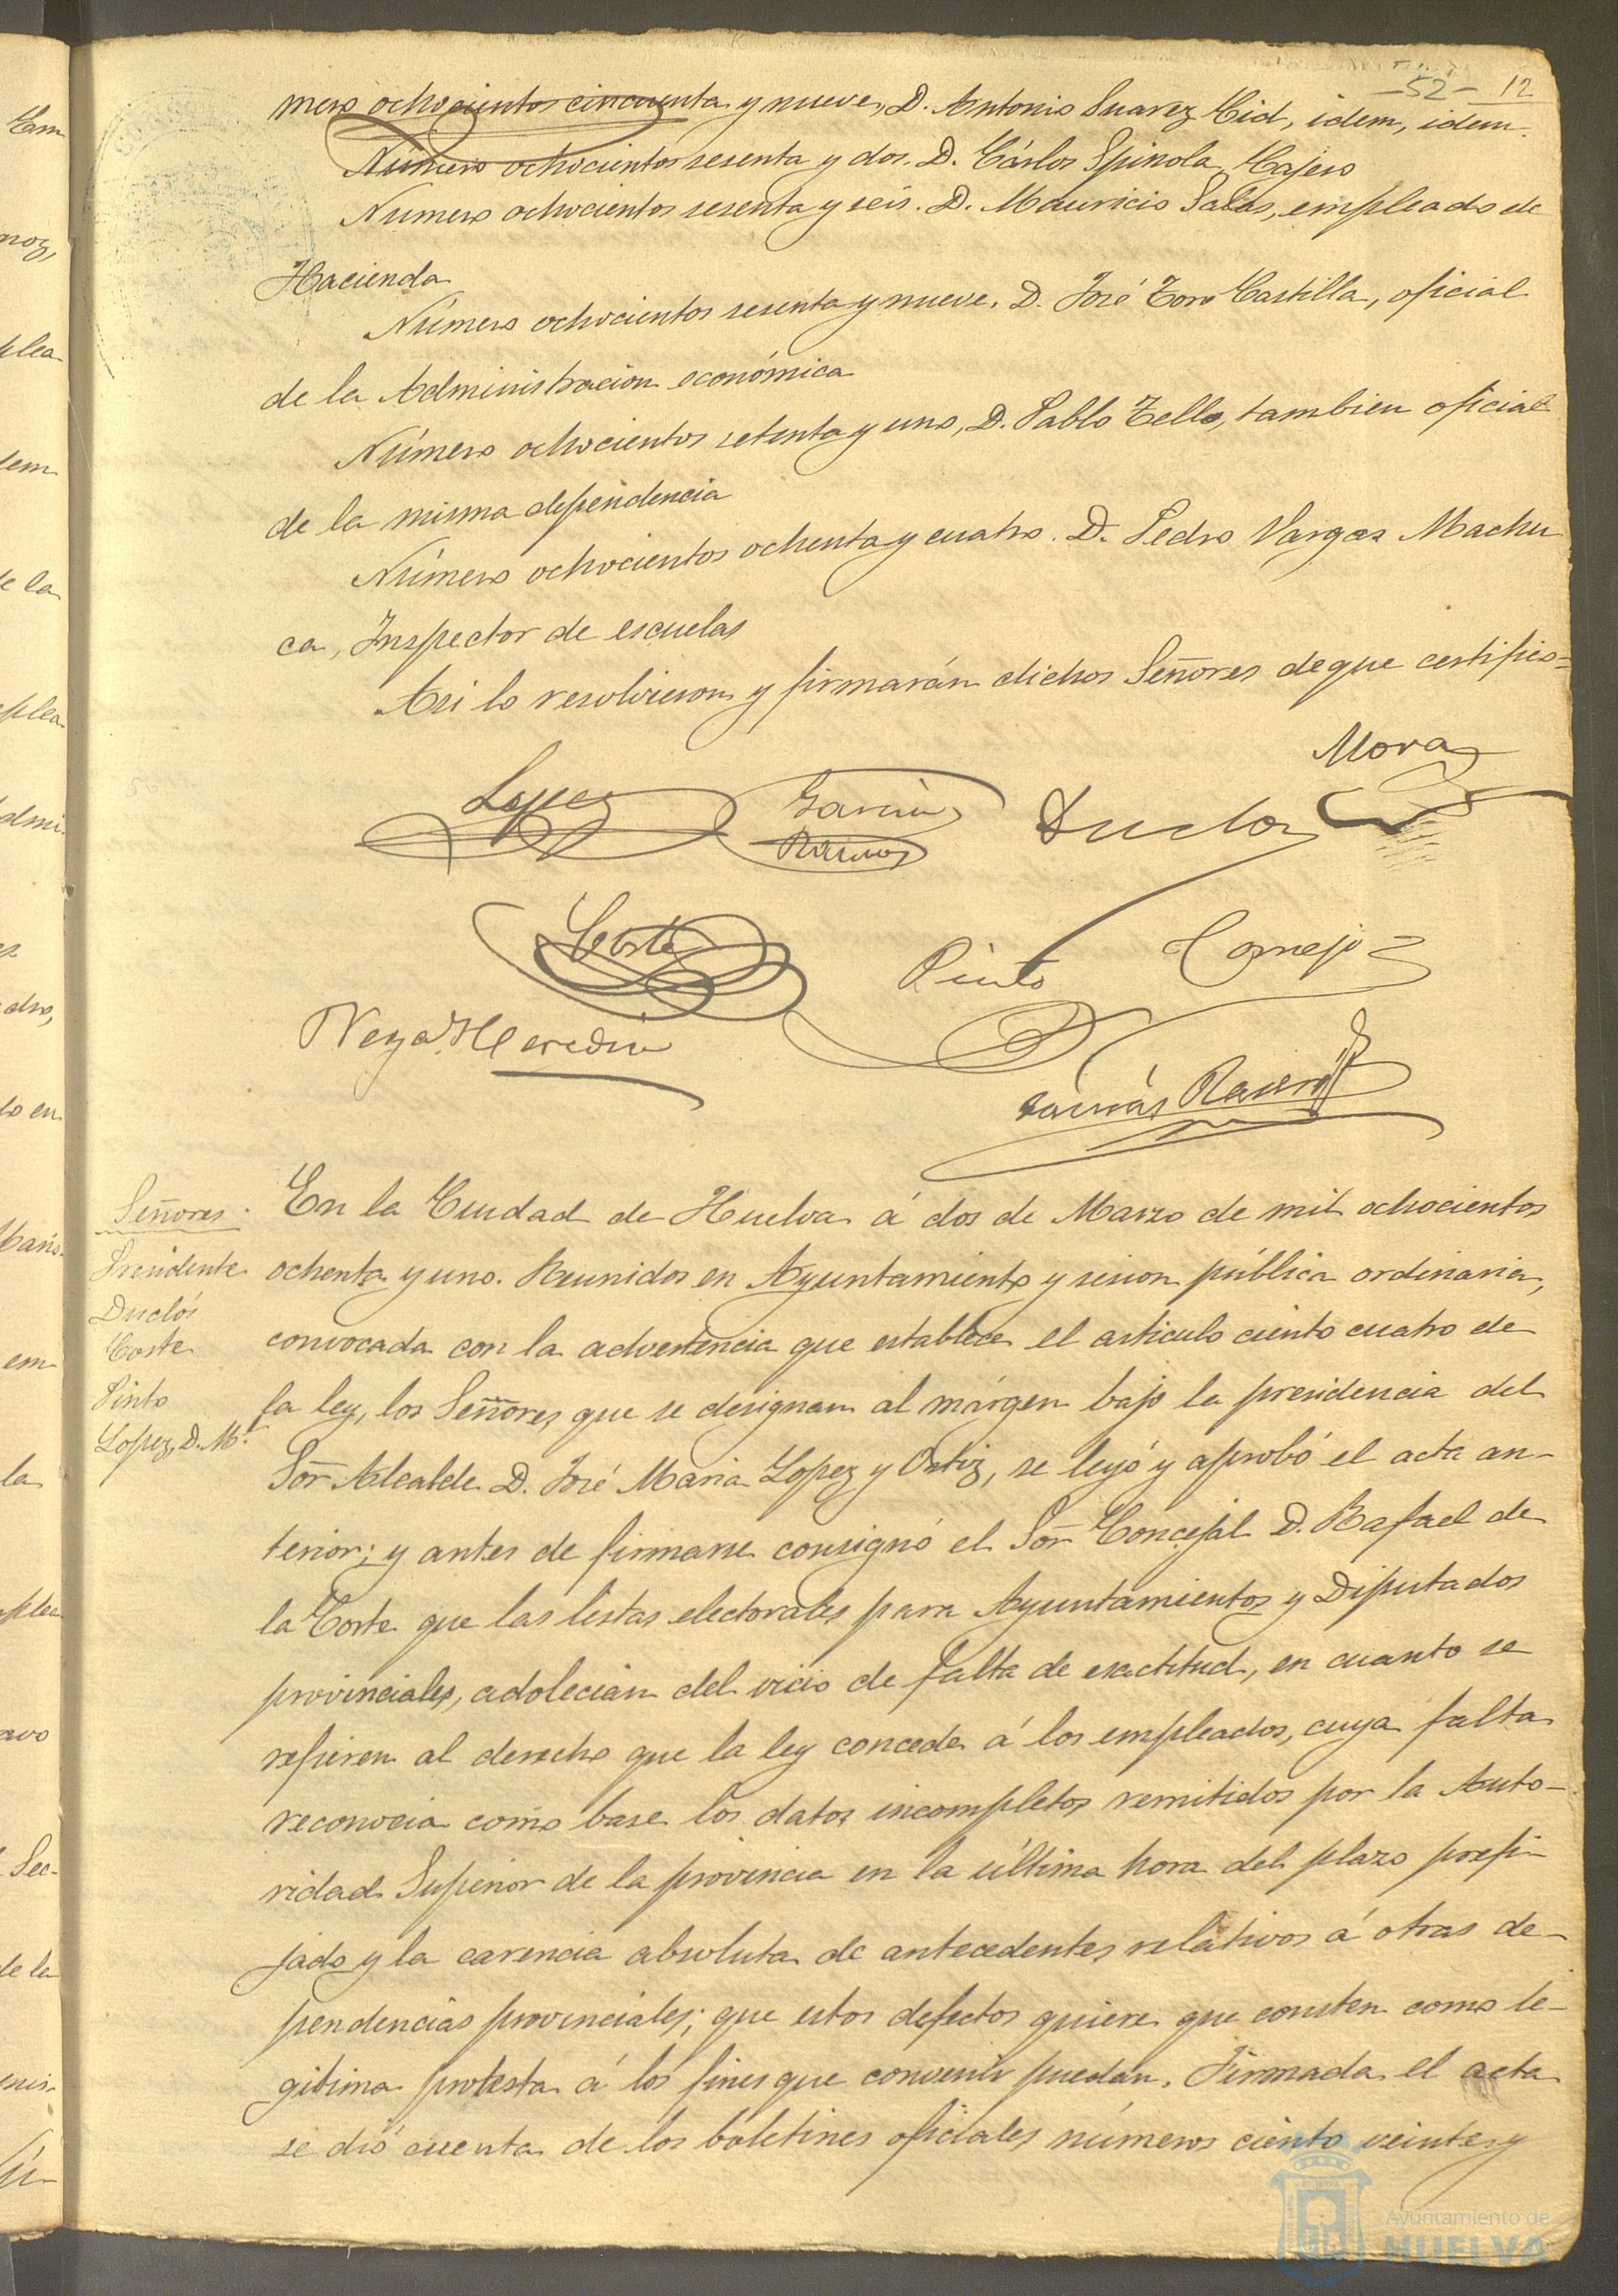 -52- 12
mero ochocientos cincuenta y nueve, D. Antonio Suarez Cid, idem, idem.
Número ochocientos sesenta y dos. D. Cárlos Spinola, Cajero
Número ochocientos sesenta y seis. D. Mauricio Salas, empleado de
Hacienda
Número ochocientos sesenta y nueve. D. José Toro Castilla, oficial
de la Administracion económica
Número ochocientos setenta y uno, D. Pablo Tello, tambien oficial
de la misma dependencia
Número ochocientos ochenta y cuatro. D. Pedro Vargas Machu
ca, Inspector de escuelas
Asi lo resolvieron y firmarán dichos Señores de que certifico=
Mora
Lopez Garcia Duclos
Ramos
Corte Pinto Cornejo
Vega Heredia
Tomás
Señores.
Presidente
Duclós
Corte
Pinto
Lopez, D. M.
En la Ciudad de Huelva á dos de Marzo de mil ochocientos
ochenta y uno. Reunidos en Ayuntamiento y sesion pública ordinaria,
convocada con la advertencia que establece el articulo ciento cuatro de
la ley, los Señores que se designan al márgen bajo la presidencia del
Sor Alcalde D. José Maria Lopez y Ortiz, se leyó y aprobó el acta an-
terior; y antes de firmarse consignó el Sor Concejal D. Rafael de
la Corte que las listas electorales para Ayuntamientos y Diputados
provinciales, adolecian del vicio de falta de exactitud, en cuanto se
refieren al derecho que la ley concede á los empleados, cuya falta
reconocia como base los datos incompletos remitidos por la Auto-
ridad Superior de la provincia en la última hora del plazo prefi-
jado y la carencia absoluta de antecedentes relativos á otras de-
pendencias provinciales; que estos defectos quiere que consten como le-
gitima protesta á los fines que convenir puedan. Firmada el acta
se dió cuenta de los boletines oficiales números ciento veinte y
Ayuntamiento de
HUELVA